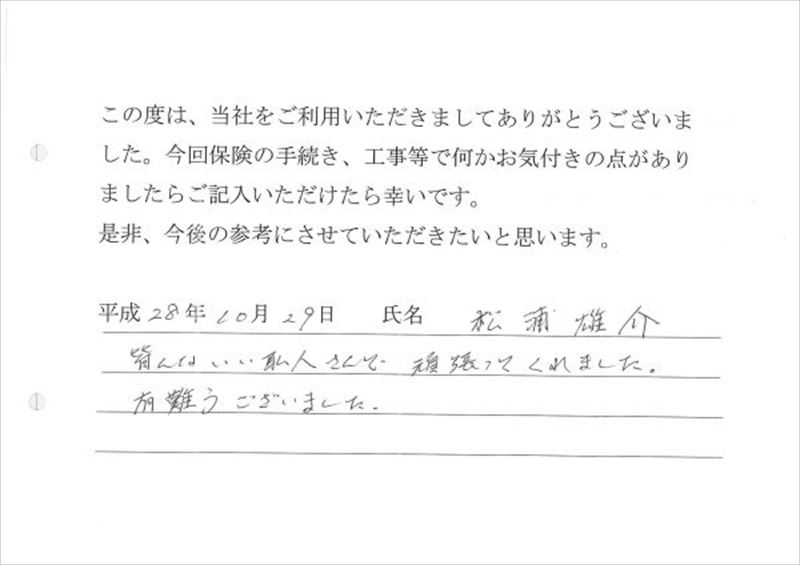 この度は、当社をご利用いただきましてありがとうございま
した。今回保険の手続き、工事等で何かお気付きの点があり
ましたらご記入いただけたら幸いです。
是非、今後の参考にさせていただきたいと思います。
平成28年10月29日 氏名 松浦雄介
皆んないい職人さんで 頑張ってくれました。
有難うございました。